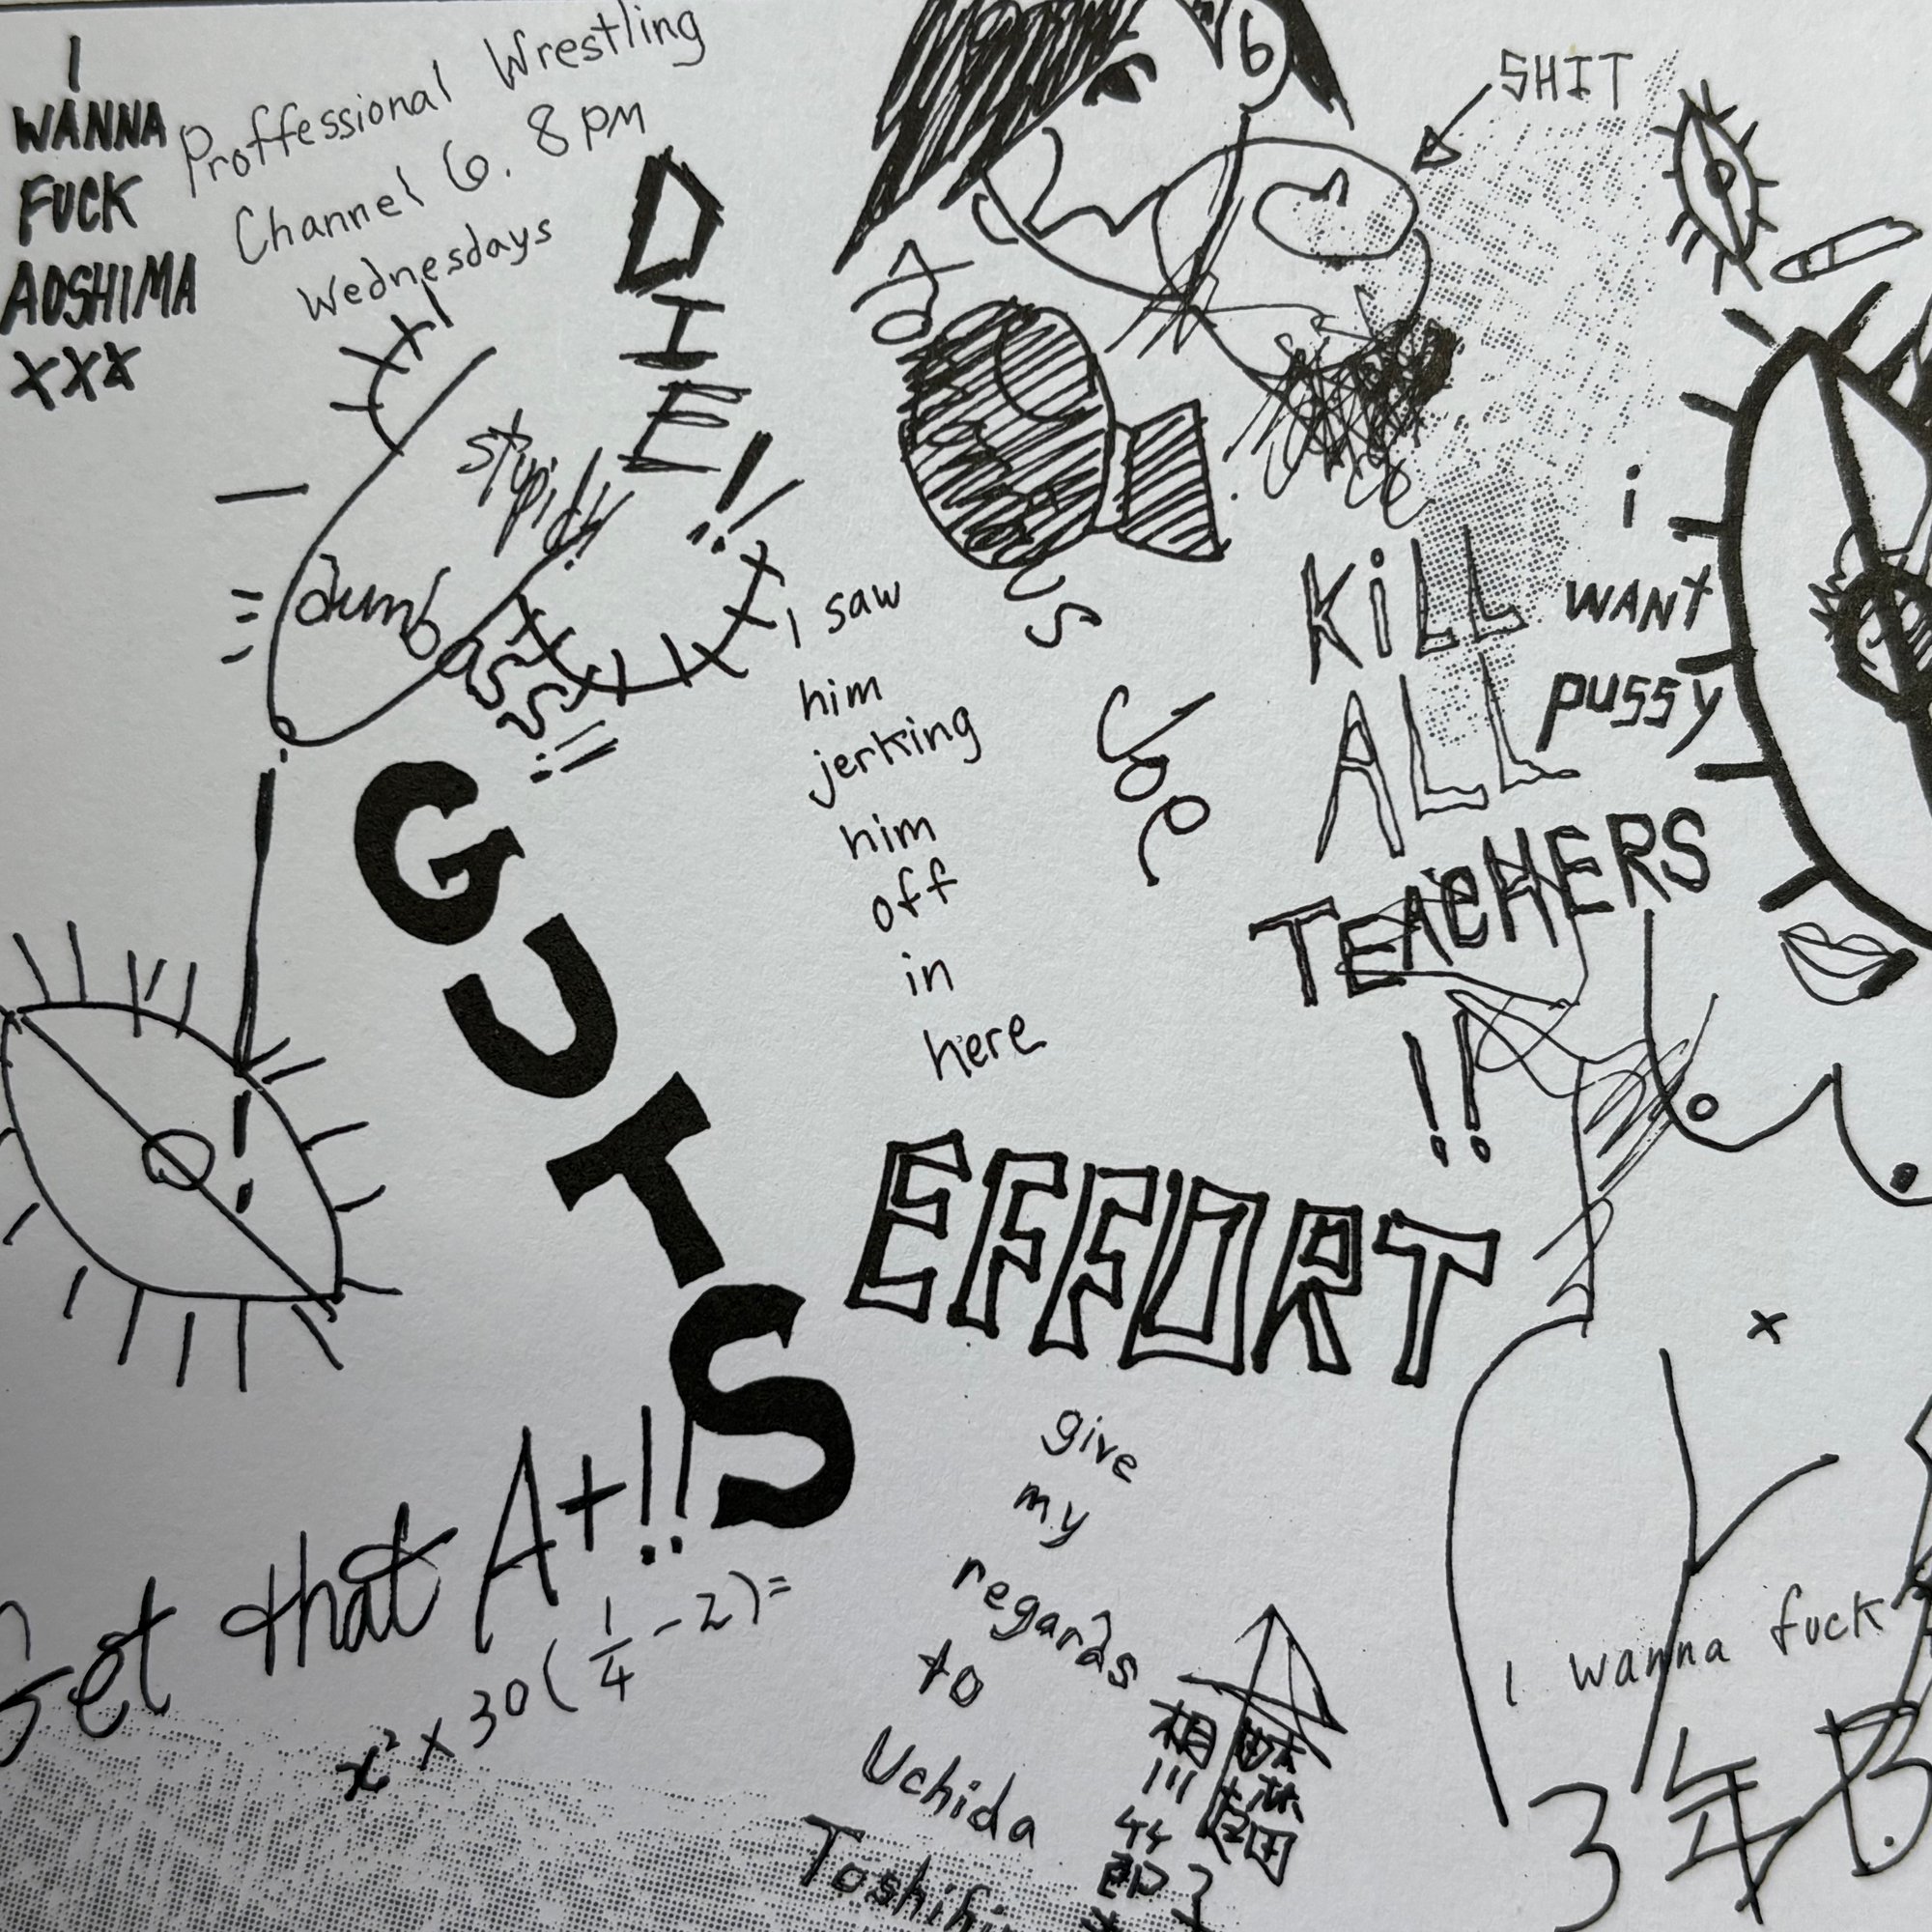 I
WANNA
FUCK
AOSHIMA
XXX
Proffessional Wrestling
Channel 6. 8 PM
Wednesdays
DIE!!
stupid!!
dumb ass!!
SHIT
Joe
I saw
him
jerking
him
off
in
here
KiLL
ALL
TEACHERS
!!
i
WANt
pussy
GUTS
EFFORT
Get that A+!!
x² × 30 ( 1/4 - 2 ) =
give
my
regards
to
Uchida
I wanna fuck
3年B